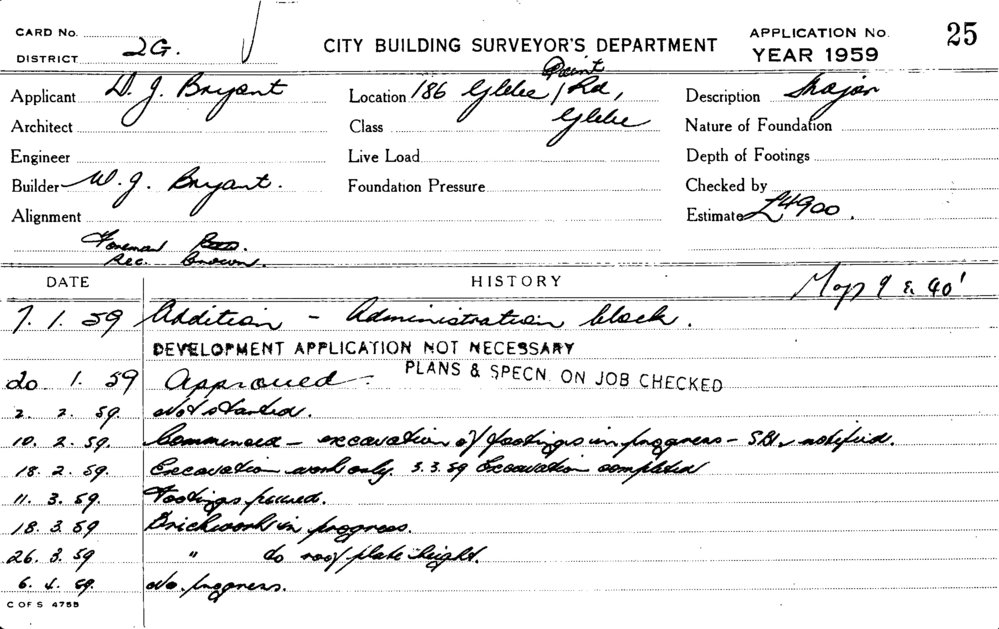 CARD No.
DISTRICT 2G.
CITY BUILDING SURVEYOR'S DEPARTMENT
APPLICATION No. 25
YEAR 1959
Applicant D. J. Bryant
Location 186 Glebe Point Rd,
Glebe
Description Major
Architect
Class
Nature of Foundation
Engineer
Live Load
Depth of Footings
Builder W. J. Bryant.
Foundation Pressure
Checked by
Alignment
Estimate £4900.
Foreman
Rec. Brown.
DATE
HISTORY
Map 9 & 40'
7. 1. 59 Addition - Administration block.
DEVELOPMENT APPLICATION NOT NECESSARY
20. 1. 59 Approved. PLANS & SPECN. ON JOB CHECKED
2. 2. 59. Not started.
10. 2. 59. Commenced - excavation of footings in progress - S.B.I. notified.
18. 2. 59. Excavation work only. 3.3.59 Excavation completed
11. 3. 59. Footings poured.
18. 3. 59 Brickwork in progress.
26. 3. 59 " to roof plate height.
6. 4. 59. No progress.
C OF S 475B